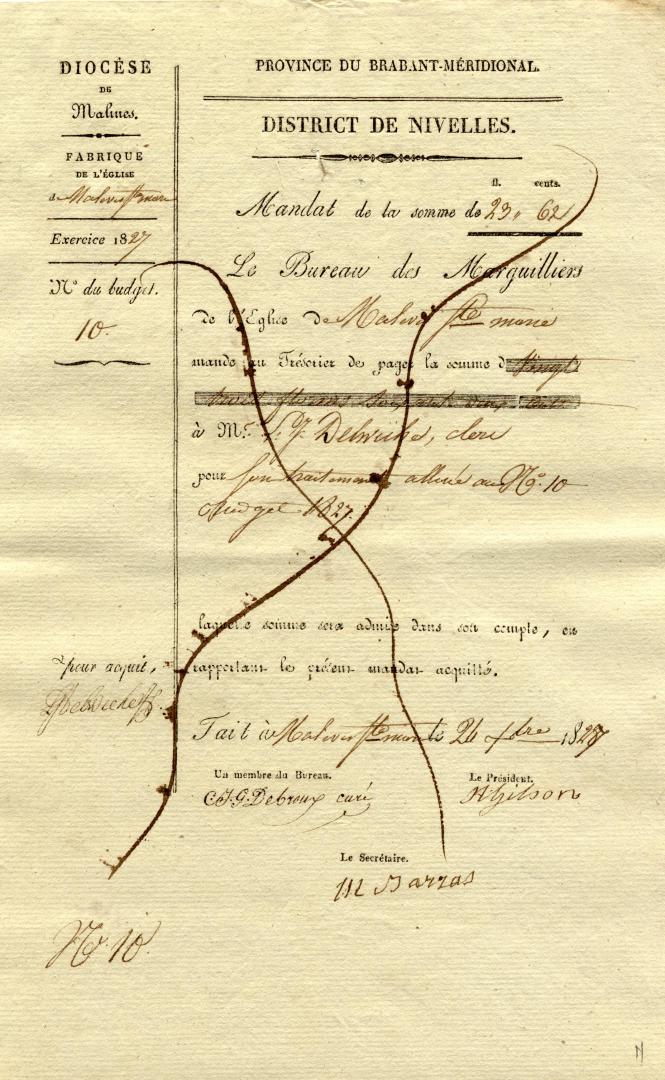 DIOCÈSE
DE
Malines.
FABRIQUE
DE L'ÉGLISE
de Malèves Ste marie
Exercice 1827
N° du budget.
10.
PROVINCE DU BRABANT-MÉRIDIONAL.
DISTRICT DE NIVELLES.
fl. cents.
Mandat de la somme de 23 " 62
Le Bureau des Marguilliers
de l'Eglise de Malèves Ste marie
mande au Trésorier de payer la somme de vingt
trois florins soixante deux cents
à Mr. Delwiche, clerc
pour son traitement alloué au N° 10
Budget 1827.
laquelle somme sera admise dans son compte, en
rapportant le présent mandat acquitté.
pour acquit,
Delwiche
Fait à Malèves Ste marie le 24 xbre 1827
Un membre du Bureau.
Le Président.
C.J.G. Debroux curé
H Gilson
Le Secrétaire.
Barras
N° 10